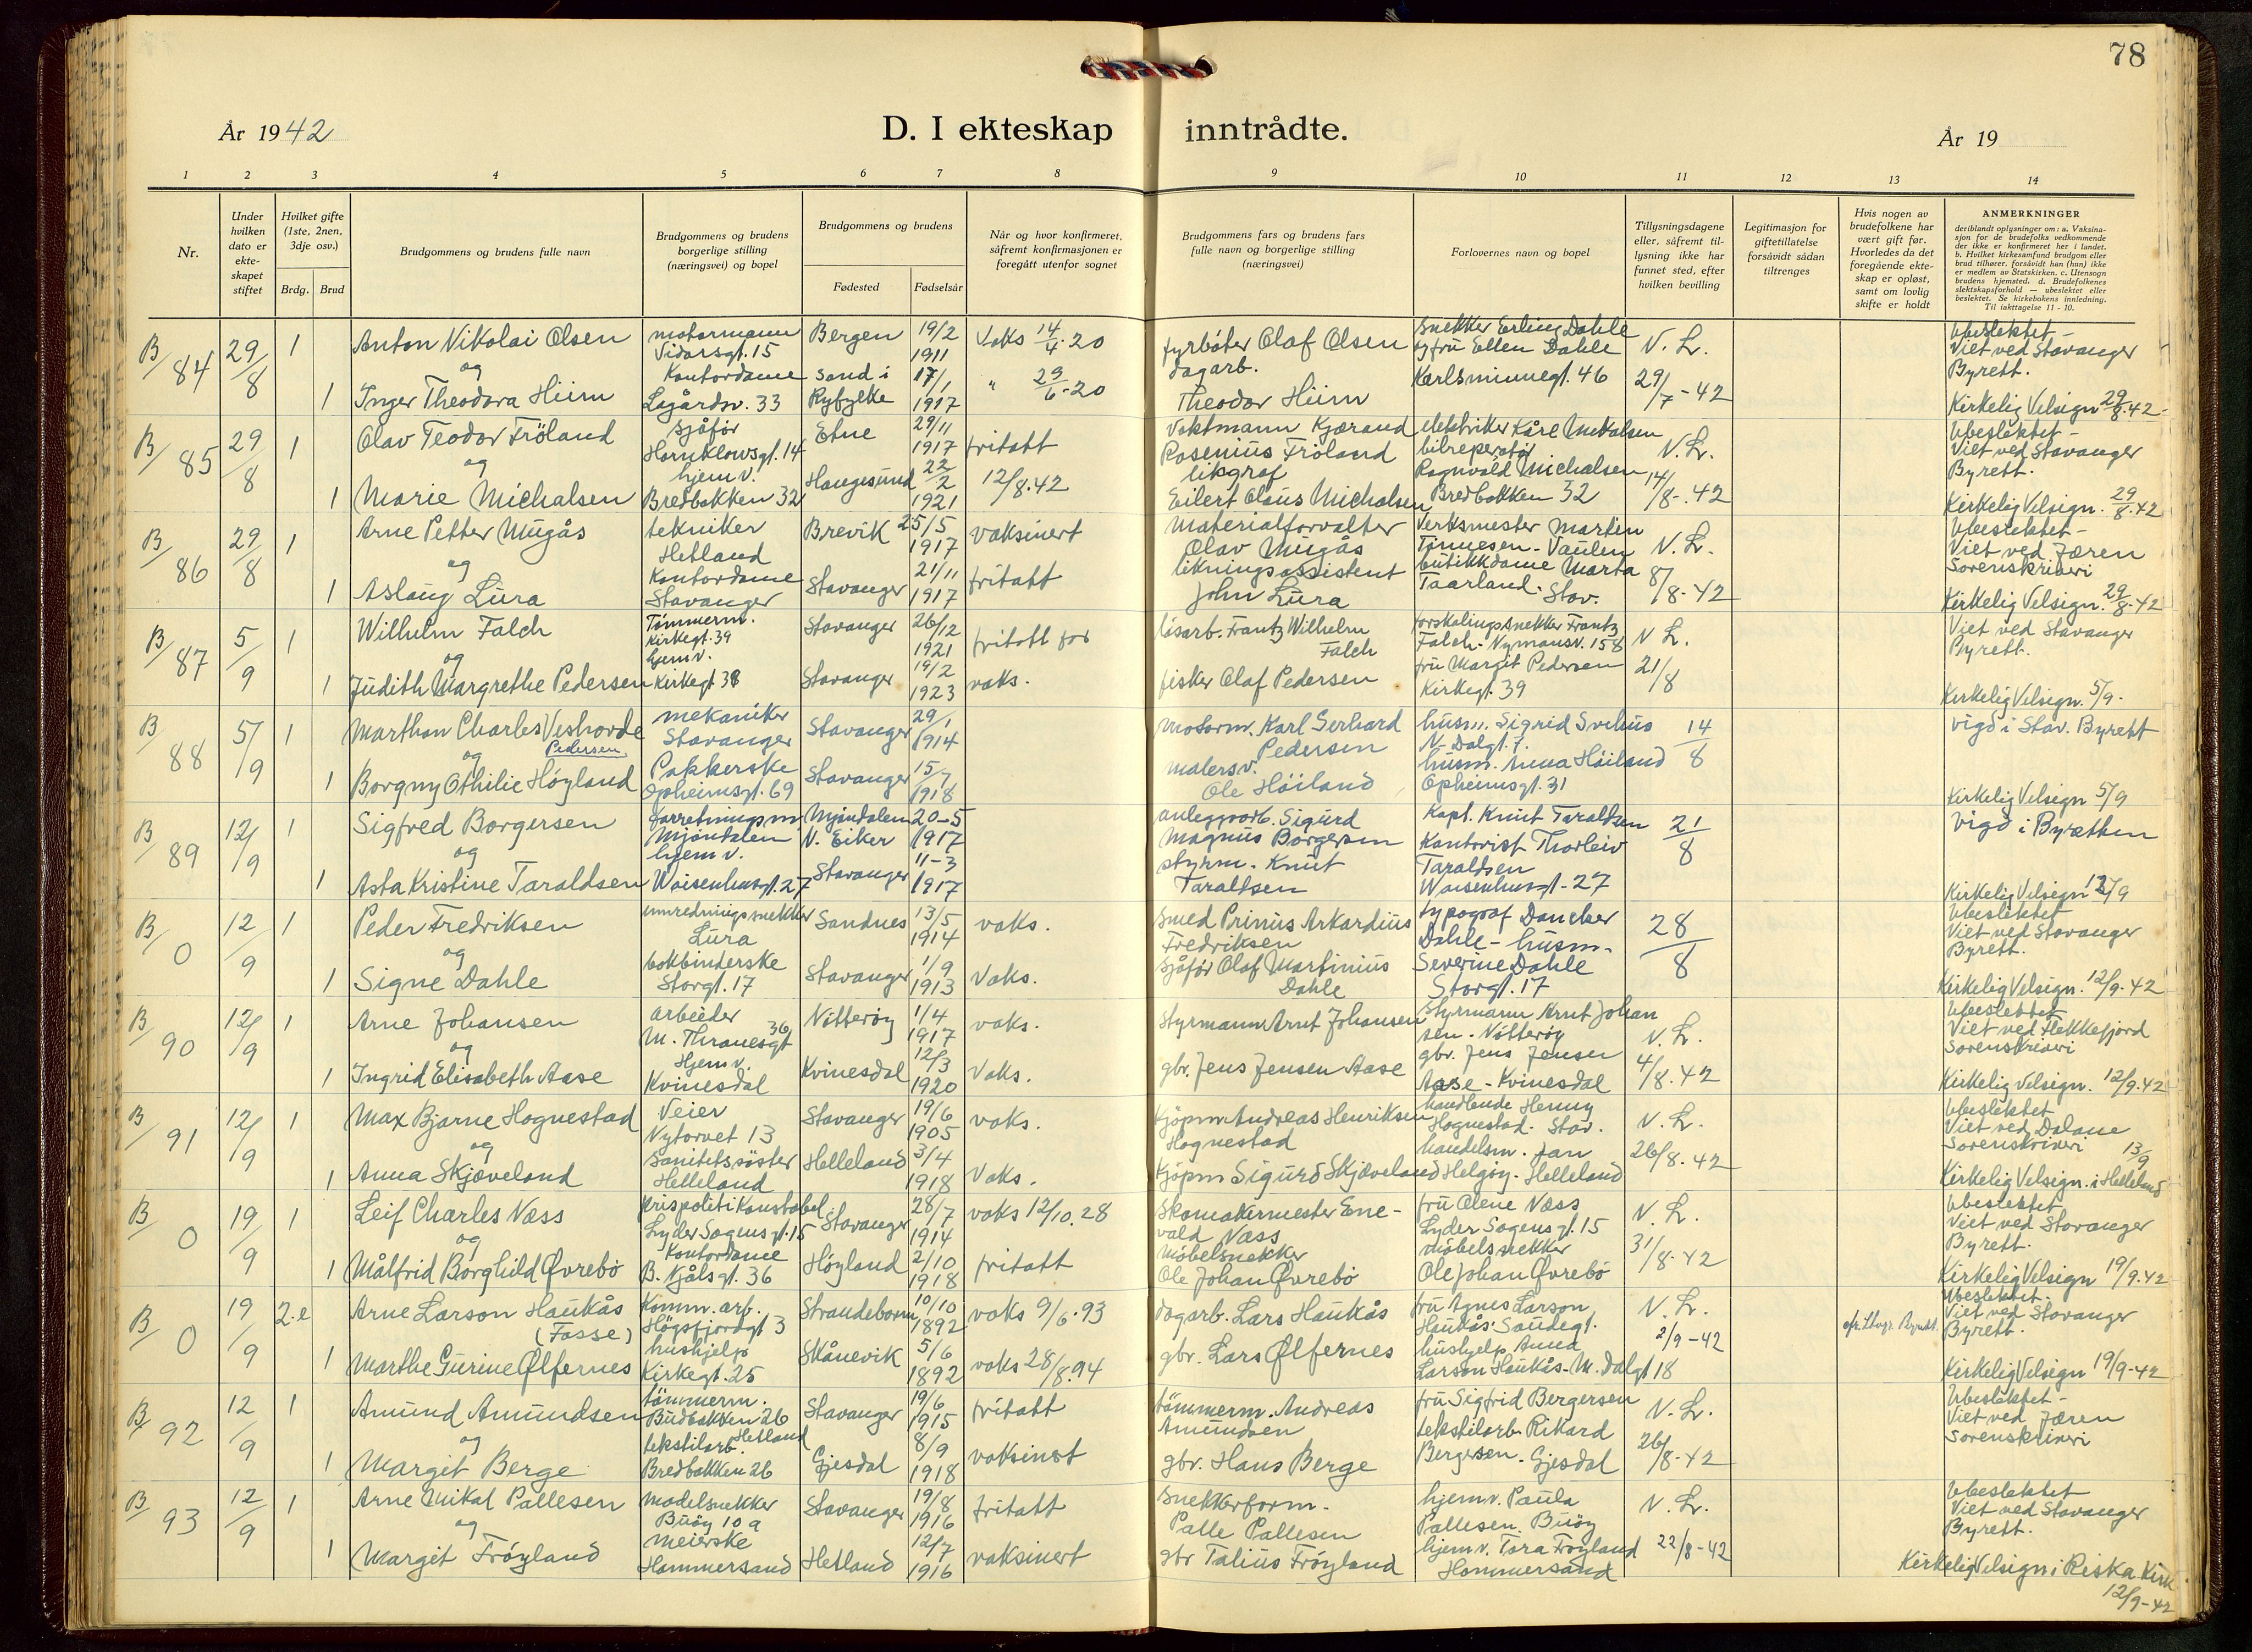 78
År 1942
D. I ekteskap inntrådte.
År 19
1 2 3 4 5 6 7 8 9 10 11 12 13 14
Nr.
Under hvilken dato er ekte-skapet stiftet
Hvilket gifte (1ste, 2nen, 3dje osv.)
Brdg. Brud
Brudgommens og brudens fulle navn
Brudgommens og brudens borgerlige stilling (næringsvei) og bopel
Brudgommens og brudens
Fødested Fødselsår
Når og hvor konfirmeret, såfremt konfirmasjonen er foregått utenfor sognet
Brudgommens fars og brudens fars fulle navn og borgerlige stilling (næringsvei)
Forlovernes navn og bopel
Tillysningsdagene eller, såfremt til-lysning ikke har funnet sted, efter hvilken bevilling
Legitimasjon for giftetillatelse forsåvidt sådan tiltrenges
Hvis nogen av brudefolkene har vært gift før. Hvorledes da det foregående ekte-skap er opløst, samt om lovlig skifte er holdt
ANMERKNINGER
deriblandt oplysninger om: a. Vaksina-sjon for de brudefolks vedkommende der ikke er konfirmeret her i landet. b. Hvilket kirkesamfund brudgom eller brud tilhører, forsåvidt han (hun) ikke er medlem av Statskirken. c. Utensogn brudens hjemsted. d. Brudefolkenes slektskapsforhold — ubeslektet eller beslektet. Se kirkebokens innledning. Til iakttagelse 11 - 10.
B/84 29/8 1 Anton Nikolai Olsen motormann Vidarsgt. 15 Bergen 19/2 1911 Vaks 14/4.20 fyrbøter Olaf Olsen snekker Erling Dahle og fru Ellen Dahle N. L. Ubeslektet - Viet ved Stavanger Byrett.
og
1 Inger Theodora Heim Kontordame Lagårdsv. 33 Sand i Ryfylke 17/1 1917 " 29/6.20 dagarb. Theodor Heim Karlsminnegt. 46 29/7-42 Kirkelig Velsign 29/8.42-
B/85 29/8 1 Olav Teodor Fröland sjåför Hornklowsgt. 14 Etne 29/11 1917 fritatt Vaktmann Kjærand Rosenius Fröland elektriker Kåre Michalsen N. L. Ubeslektet - Viet ved Stavanger Byrett.
og
1 Marie Michalsen hjemv. Bredbakken 32 Haugesund 22/2 1921 12/8.42 Eilert Claus Michalsen bilreperatör Ragnvald Michalsen Bredbakken 32 14/8-.42 Kirkelig Velsign. 29/8.42
B/86 29/8 1 Arne Petter Mugås tekniker Hetland Brevik 25/5 1917 vaksinert Materialforvalter Olav Mugås Verksmester Martin Tinnesen - Vaulen N. L. Ubeslektet - Viet ved Jæren Sorenskriveri
og
1 Aslaug Lura Kontordame Stavanger Stavanger 21/11 1917 fritatt likningsassistent John Lura butikkdame Marta Taarland - Stav. 8/8-42 Kirkelig Velsign. 29/8.42
B/87 5/9 1 Wilhelm Falch Tømmerm. Kirkegt. 39 Stavanger 26/12 1921 fritatt for lösarb. Frantz Wilhelm Falch forskalingssnekker Frantz Falch - Nymansv. 158 N L. Viet ved Stavanger Byrett.
og
1 Judith Margrethe Pedersen hjemv. Kirkegt 38 Stavanger 19/2 1923 vaks. fisker Olaf Pedersen fru Margit Pedersen Kirkegt. 39 21/8 Kirkelig Velsign. 5/9.
B/88 5/9 1 Marthon Charles Veshovde Pedersen mekaniker Stavanger Stavanger 29/1 1914 motorm. Karl Gerhard Pedersen husm. Sigrid Svelius N. Dalgt. 7. 14/8 vigd i Stav. Byrett
og
1 Borgny Othilie Höyland Pakkerske Opheimsgt. 69 Stavanger 15/7 1918 malersv. Ole Höiland husm. Anna Höiland Opheimsgt. 31 Kirkelig Velsign 5/9
B/89 12/9 1 Sigfred Borgersen forretningsm Mjöndalen Mjöndalen N. Eiker 20-5 1917 anleggsarb. Sigurd Magnus Borgersen Kapt. Knut Taraldsen 21/8 vigd i Byretten
og
1 Asta Kristine Taraldsen hjem v. Waisenhusgt. 27 Stavanger 11-3 1917 styrm. Knut Taraldsen Kontorist Thorleiv Taraldsen Waisenhusgt - 27 Kirkelig Velsign 12/9
B/0 12/9 1 Peder Fredriksen innredningssnekker Lura Sandnes 13/5 1914 vaks. Smed Prinus Arkardius Fredriksen typograf Dancker Dahle - husm. 28/8 Ubeslektet Viet ved Stavanger Byrett.
og
1 Signe Dahle bokbinderske Storgt. 17 Stavanger 1/9 1913 Vaks. sjåför Olaf Martinius Dahle Severine Dahle Storgt. 17 Kirkelig Velsign. 12/9.42
B/90 12/9 1 Arne Johansen arbeider M. Thranesgt 36 Nötteröy 1/4 1917 vaks. Styrmann Arnt Johansen Styrmann Arnt Johansen - Nötteröy N. L. Ubeslektet Viet ved Flekkefjord Sorenskriveri
og
1 Ingrid Elisabeth Aase Hjemv. Kvinesdal Kvinesdal 12/3 1920 Vaks. gbr. Jens Jensen Aase gbr. Jens Jensen Aase - Kvinesdal 4/8.42 Kirkelig Velsign. 12/9.42
B/91 12/9 1 Max Bjarne Hognestad Veier Nytorvet 13 Stavanger 19/6 1905 vaks. Kjöpm Andreas Henriksen Hognestad handlende Henny Hognestad - Stav. N. L. Ubeslektet Viet ved Dalane Sorenskriveri
og
1 Anna Skjæveland Sanitetssöster Helleland Helleland 3/4 1918 Vaks. Kjöpm Sigurd Skjæveland handelsm. Jan Helgöy - Helleland 26/8.42 Kirkelig Velsign. i Helleland 13/9
B/0 19/9 1 Leif Charles Næss prispolitikonstabel Lyder Sagens gt. 15 Stavanger 28/7 1914 vaks 12/10.28 Skomakermester Enevald Næss fru Olene Næss Lyder Sagens gt. 15 N. L. Ubeslektet Viet ved Stavanger Byrett.
og
1 Målfrid Borghild Øvrebö Kontordame B. Njålsgt. 36 Höyland 2/10 1918 fritatt Möbelsnekker Ole Johan Øvrebö möbelsnekker Ole Johan Øvrebö 31/8.42 Kirkelig Velsign 19/9.42
B/0 19/9 2.e Arne Larson Haukås (Fosse) Komm. arb. Högsfjordgt 3 Strandebarm 10/10 1892 vaks 9/6.93 dagarb. Lars Haukås fru Agnes Larson Haukås. Saudegt. N. L. Ubeslektet. Viet ved Stavanger Byrett.
1 Marthe Gurine Ølfernes hushjelp Kirkegt. 25 Skånevik 5/6 1892 vaks 28/8.94 gbr. Lars Ølfernes hushjelp Anna Larson Haukås - M. Dalgt 18 2/9-42 Kirkelig Velsign 19/9-42
B/92 12/9 1 Amund Amundsen tömmerm. Budbakken 26 Hetland Stavanger 19/6 1915 fritatt tömmerm. Andreas Amundsen fru Sigfrid Bergersen N. L. Ubeslektet - Viet ved Jæren Sorenskriveri
og
1 Margit Berge tekstilarb. Bredbakken 26 Gjesdal 8/9 1918 vaksinert gbr. Hans Berge tekstilarb. Rikard Bergersen. Gjesdal 26/8-42
B/93 12/9 1 Arne Mikal Pallesen modelsnekker Buöy 10 a Stavanger 19/8 1916 fritatt Snekkerform. Palle Pallesen hjemv. Paula Pallesen. Buöy N. L. Ubeslektet Viet ved Stavanger Byrett.
og
1 Margit Fröyland meierske Hommersand Hetland 12/7 1916 vaksinert gbr Talius Fröyland hjemv. Tora Fröyland Hommersand 22/8-42 Kirkelig Velsign i Riska Kirk 12/9-42